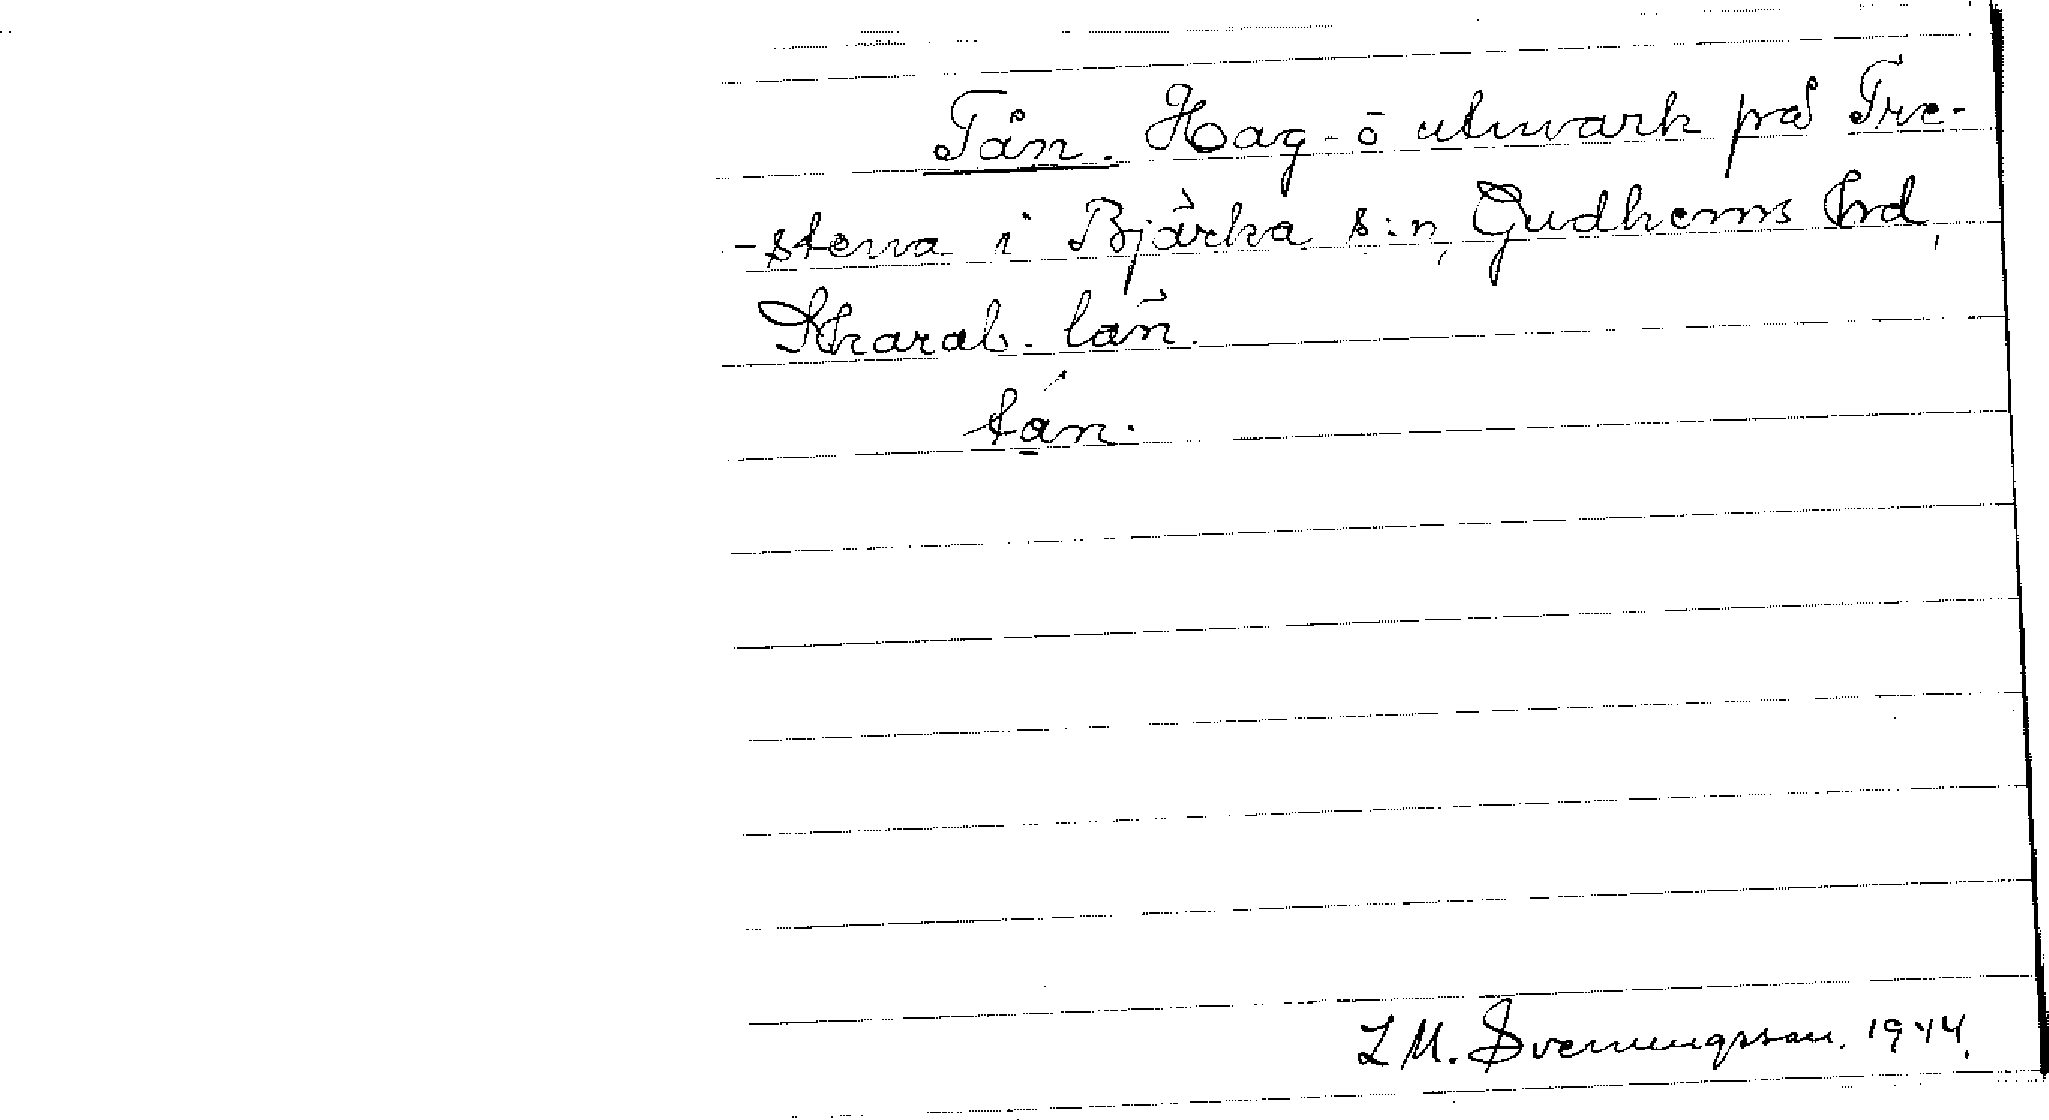 Tån. Hag- ō utmark på Tre-
-stena i Bjärka s:n, Gudhems hrd,
Skarab. län.
tán.
L M. Svenungsson. 1944.